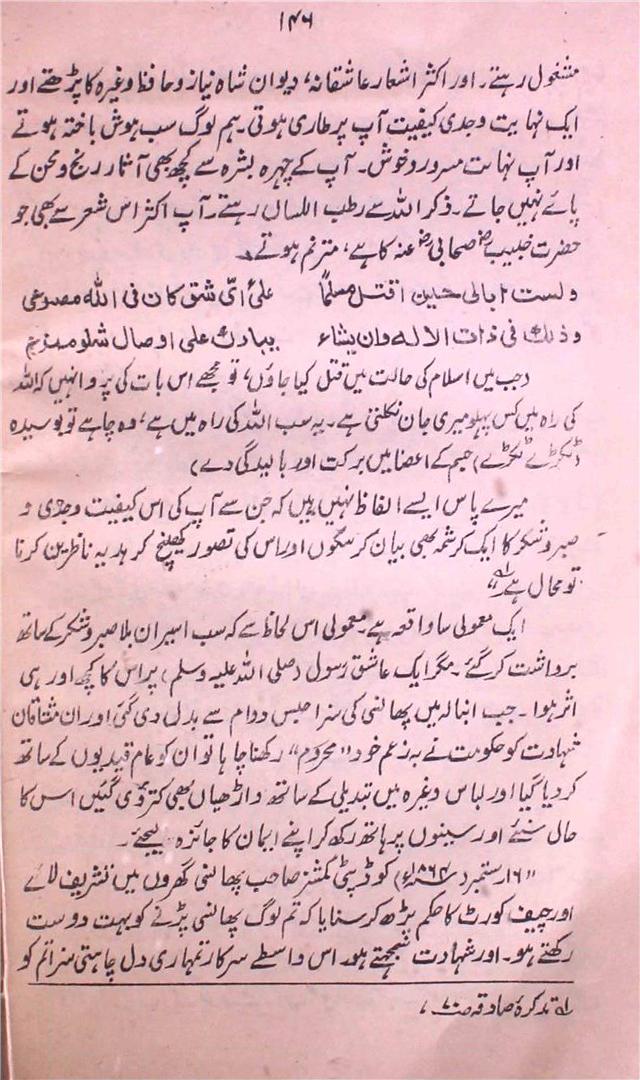 ۱۴۶
مشغول رہتے۔ اور اکثر اشعار عاشقانہ، دیوان شاہ نیاز و حافظ وغیرہ کا پڑھتے اور
ایک نہایت وجدی کیفیت آپ پر طاری ہوتی۔ ہم لوگ سب ہوش باختہ ہوتے
اور آپ نہایت مسرور و خوش۔ آپ کے چہرہ بشرہ سے کچھ بھی آثار رنج و محن کے
پائے نہیں جاتے۔ ذکر اللہ سے رطب اللساں رہتے۔ آپ اکثر اس شعر سے بھی جو
حضرت خبیبؓ صحابیؓ عنہ کا ہے، مترنم ہوتے۔
ولست ابالی حین اقتل مسلمًا علیٰ ایّ شق کان فی اللہ مصرعی
وذلک فی ذات الالہ وان یشاء یبارک علی اوصال شلو ممزع
(جب میں اسلام کی حالت میں قتل کیا جاؤں، تو مجھے اس بات کی پروا نہیں کہ اللہ
کی راہ میں کس پہلو میری جان نکلتی ہے۔ یہ سب اللہ کی راہ میں ہے، وہ چاہے تو بوسیدہ
(ٹکڑے ٹکڑے) جسم کے اعضا میں برکت اور بالیدگی دے)
میرے پاس ایسے الفاظ نہیں ہیں کہ جن سے آپ کی اس کیفیت وجدی و
صبر و شکر کا ایک کرشمہ بھی بیان کر سکوں اور اس کی تصور کھینچ کر ہدیہ ناظرین کرنا
تو محال ہے لہ،،
ایک معمولی سا واقعہ ہے۔ معمولی اس لحاظ سے کہ سب اسیران بلا صبر و شکر کے ساتھ
برداشت کر گئے۔ مگر ایک عاشق رسول (صلی اللہ علیہ وسلم) پر اس کا کچھ اور ہی
اثر ہوا۔ جب انبالہ میں پھانسی کی سزا حبس دوام سے بدل دی گئی اور ان مشتاقان
شہادت کو حکومت نے بہ زعم خود "محروم" رکھنا چاہا تو ان کو عام قیدیوں کے ساتھ
کر دیا گیا اور لباس وغیرہ میں تبدیلی کے ساتھ داڑھیاں بھی کتروی گئیں اس کا
حال سنئے اور سینوں پر ہاتھ رکھ کر اپنے ایمان کا جائزہ لیجئے۔
"۱۶ ستمبر (۱۸۶۴ء) کو ڈپٹی کمشنر صاحب پھانسی گھروں میں تشریف لائے
اور چیف کورٹ کا حکم پڑھ کر سنایا کہ تم لوگ پھانسی پڑنے کو بہت دوست
رکھتے ہو۔ اور شہادت سمجھتے ہو۔ اس واسطے سرکار تمہاری دل چاہتی سزا تم کو
لہ تذکرۂ صادقہ ص۷۰،